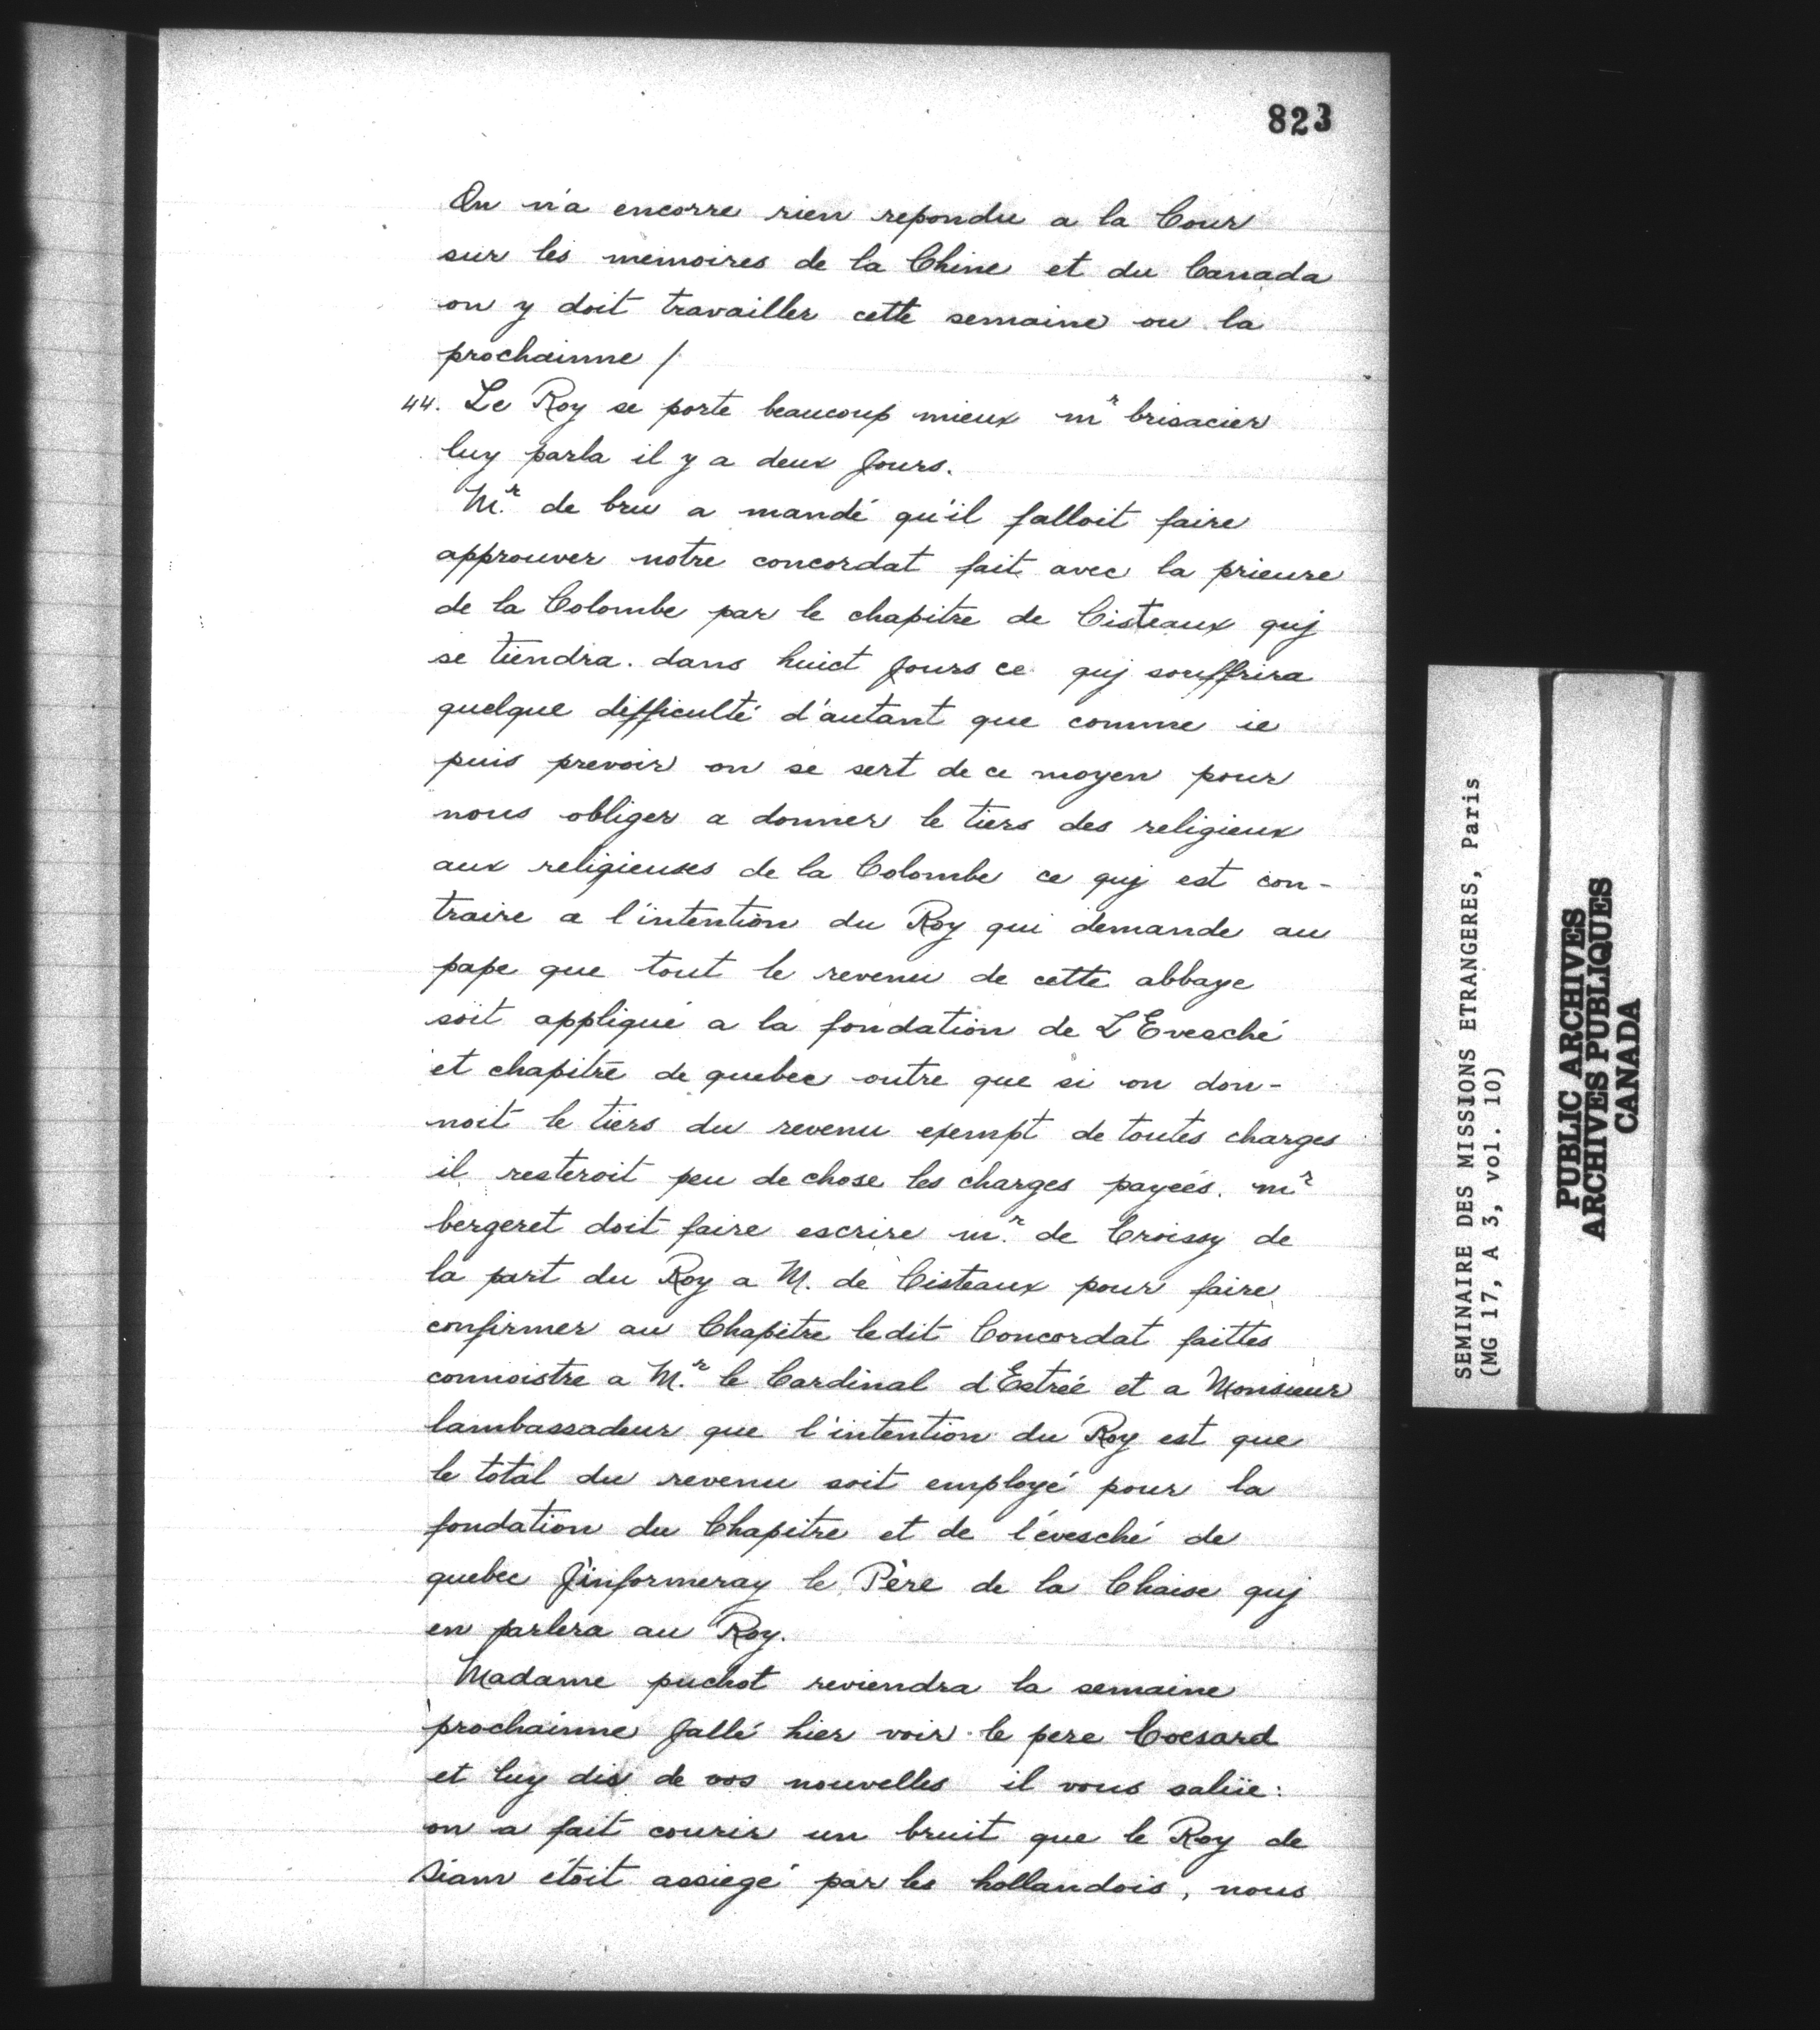 823
On n'a encorre rien repondu a la Cour
sur les memoires de la Chine et du Canada
on y doit travailler cette semaine ou la
prochainne /.
44. Le Roy se porte beaucoup mieux mr brisacier
luy parla il y a deux Jours.
M.r de bru a mandé qu'il falloit faire
approuver notre concordat fait avec la prieure
de la Colombe par le chapitre de Cisteaux quj
se tiendra. dans huict Jours ce quj souffrira
quelque difficulté d'autant que comme ie
puis prevoir on se sert de ce moyen pour
nous obliger a donner le tiers des religieux
aux religieuses de la Colombe ce quj est con-
traire a l'intention du Roy qui demande au
pape que tout le revenu de cette abbaye
soit appliqué a la fondation de L'Evesché
et chapitre de quebec outre que si on don-
noit le tiers du revenu exempt de toutes charges
il resteroit peu de chose les charges payées. mr
bergeret doit faire escrire m.r de Croissy de
la part du Roy a M. de Cisteaux pour faire
confirmer au Chapitre ledit Concordat faittes
connoistre a M.r le Cardinal d'Estrée et a Monsieur
lambassadeur que l'intention du Roy est que
le total du revenu soit employé pour la
fondation du Chapitre et de l'évesché de
quebec J'informeray le Père de la Chaise quj
en parlera au Roy.
Madame puchot reviendra la semaine
prochainne Jallé hier voir le pere Coesard
et luy dis de vos nouvelles il vous salüe:
on a fait courir un bruit que le Roy de
Siam étoit assiegé par les hollandois, nous
SEMINAIRE DES MISSIONS ETRANGERES, Paris
(MG 17, A 3, vol. 10)
PUBLIC ARCHIVES
ARCHIVES PUBLIQUES
CANADA